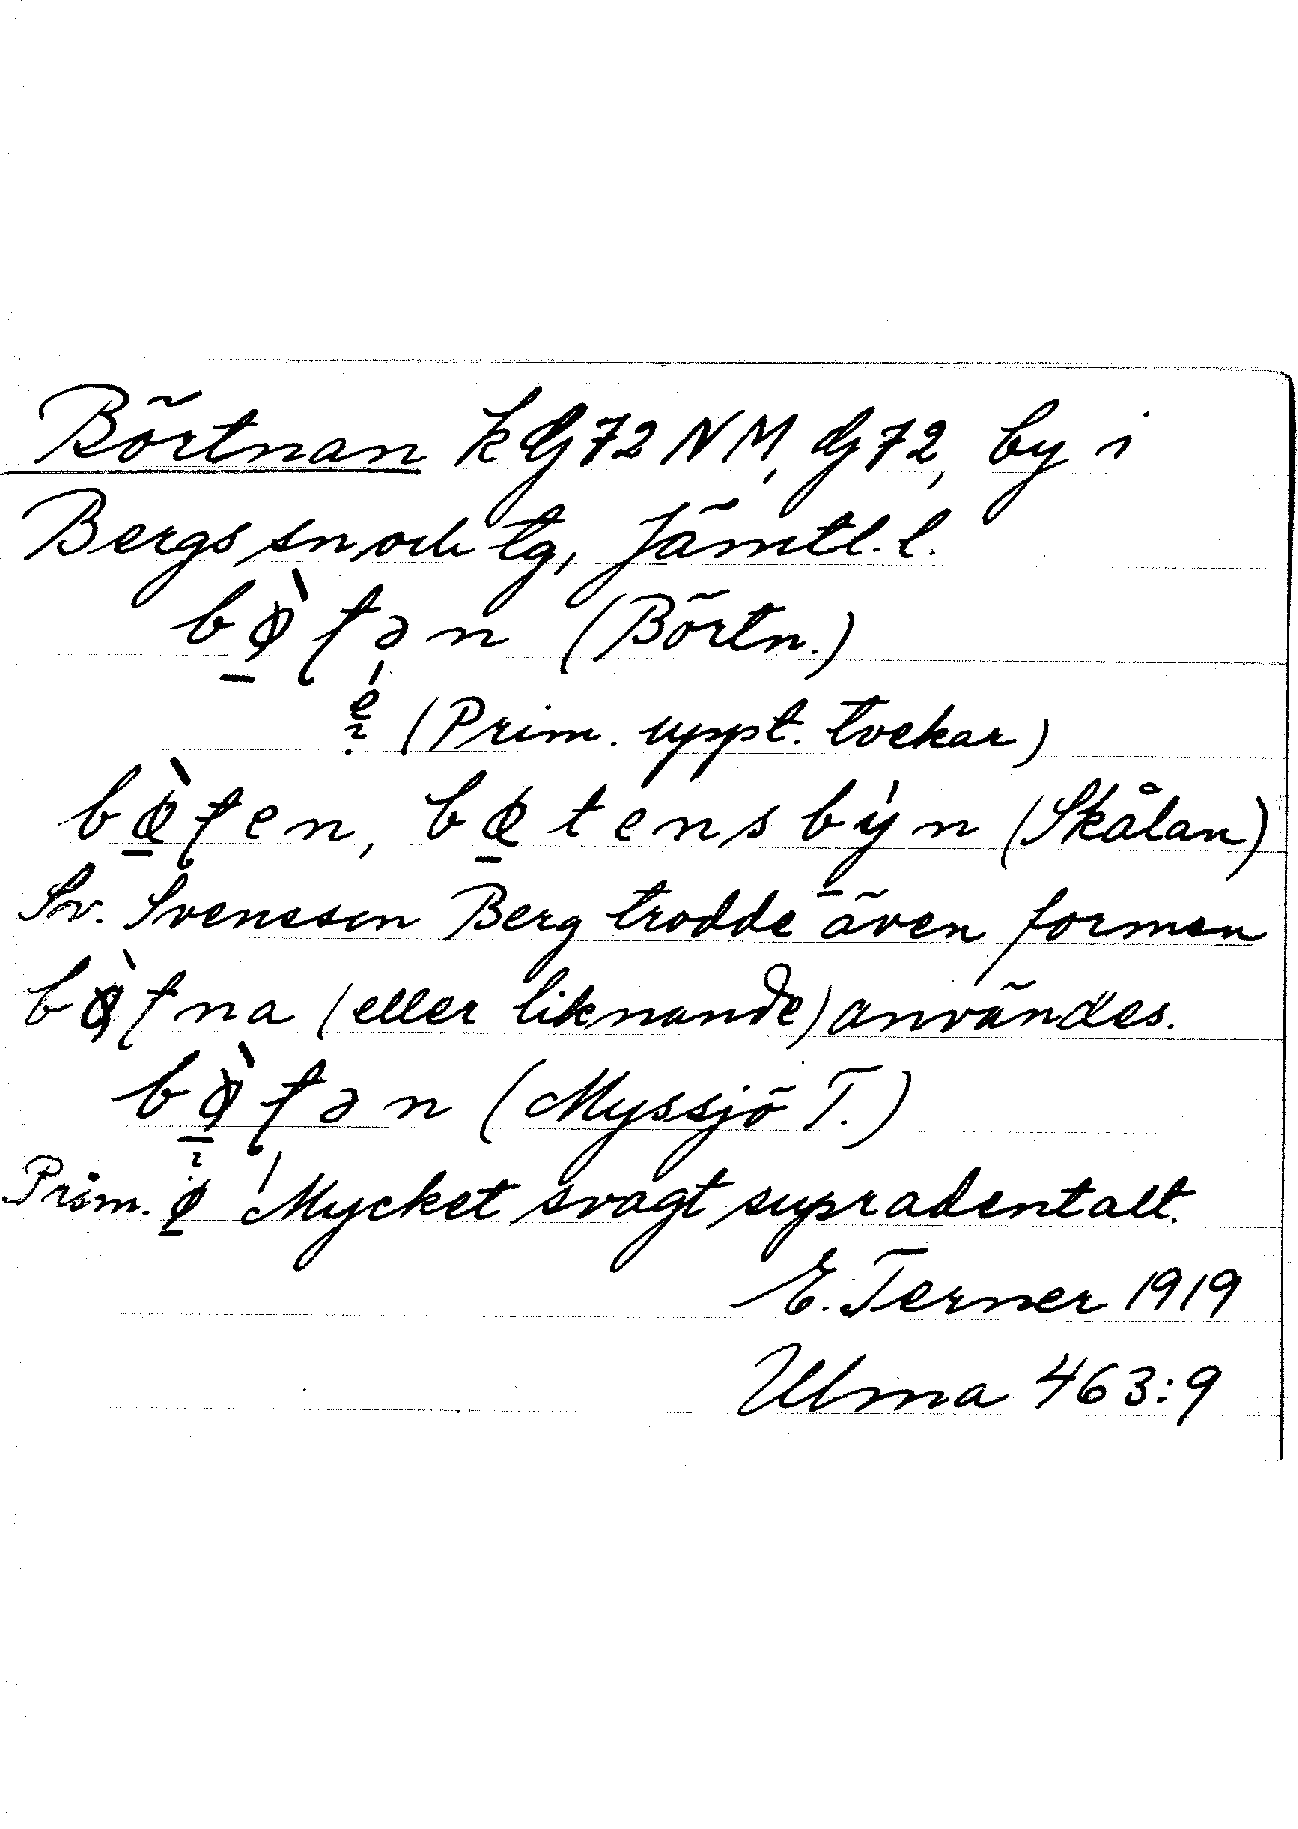 Börtnan k GJ72 NM, GJ72, by i
Bergs sn och tg, Jämtl. l.
bø̀ʈən (Börtn.)
e? (Prim. uppt. tvekar)
bœ̀ʈen, bœtensbýn (Skålan)
Sv. Svenesen Berg trodde även formen
bø̀ʈna (eller liknande) användes.
bø̀ʈən (Myssjö T.)
Prim. ø Mycket svagt supradentalt.
E. Terner 1919
Ulma 463:9